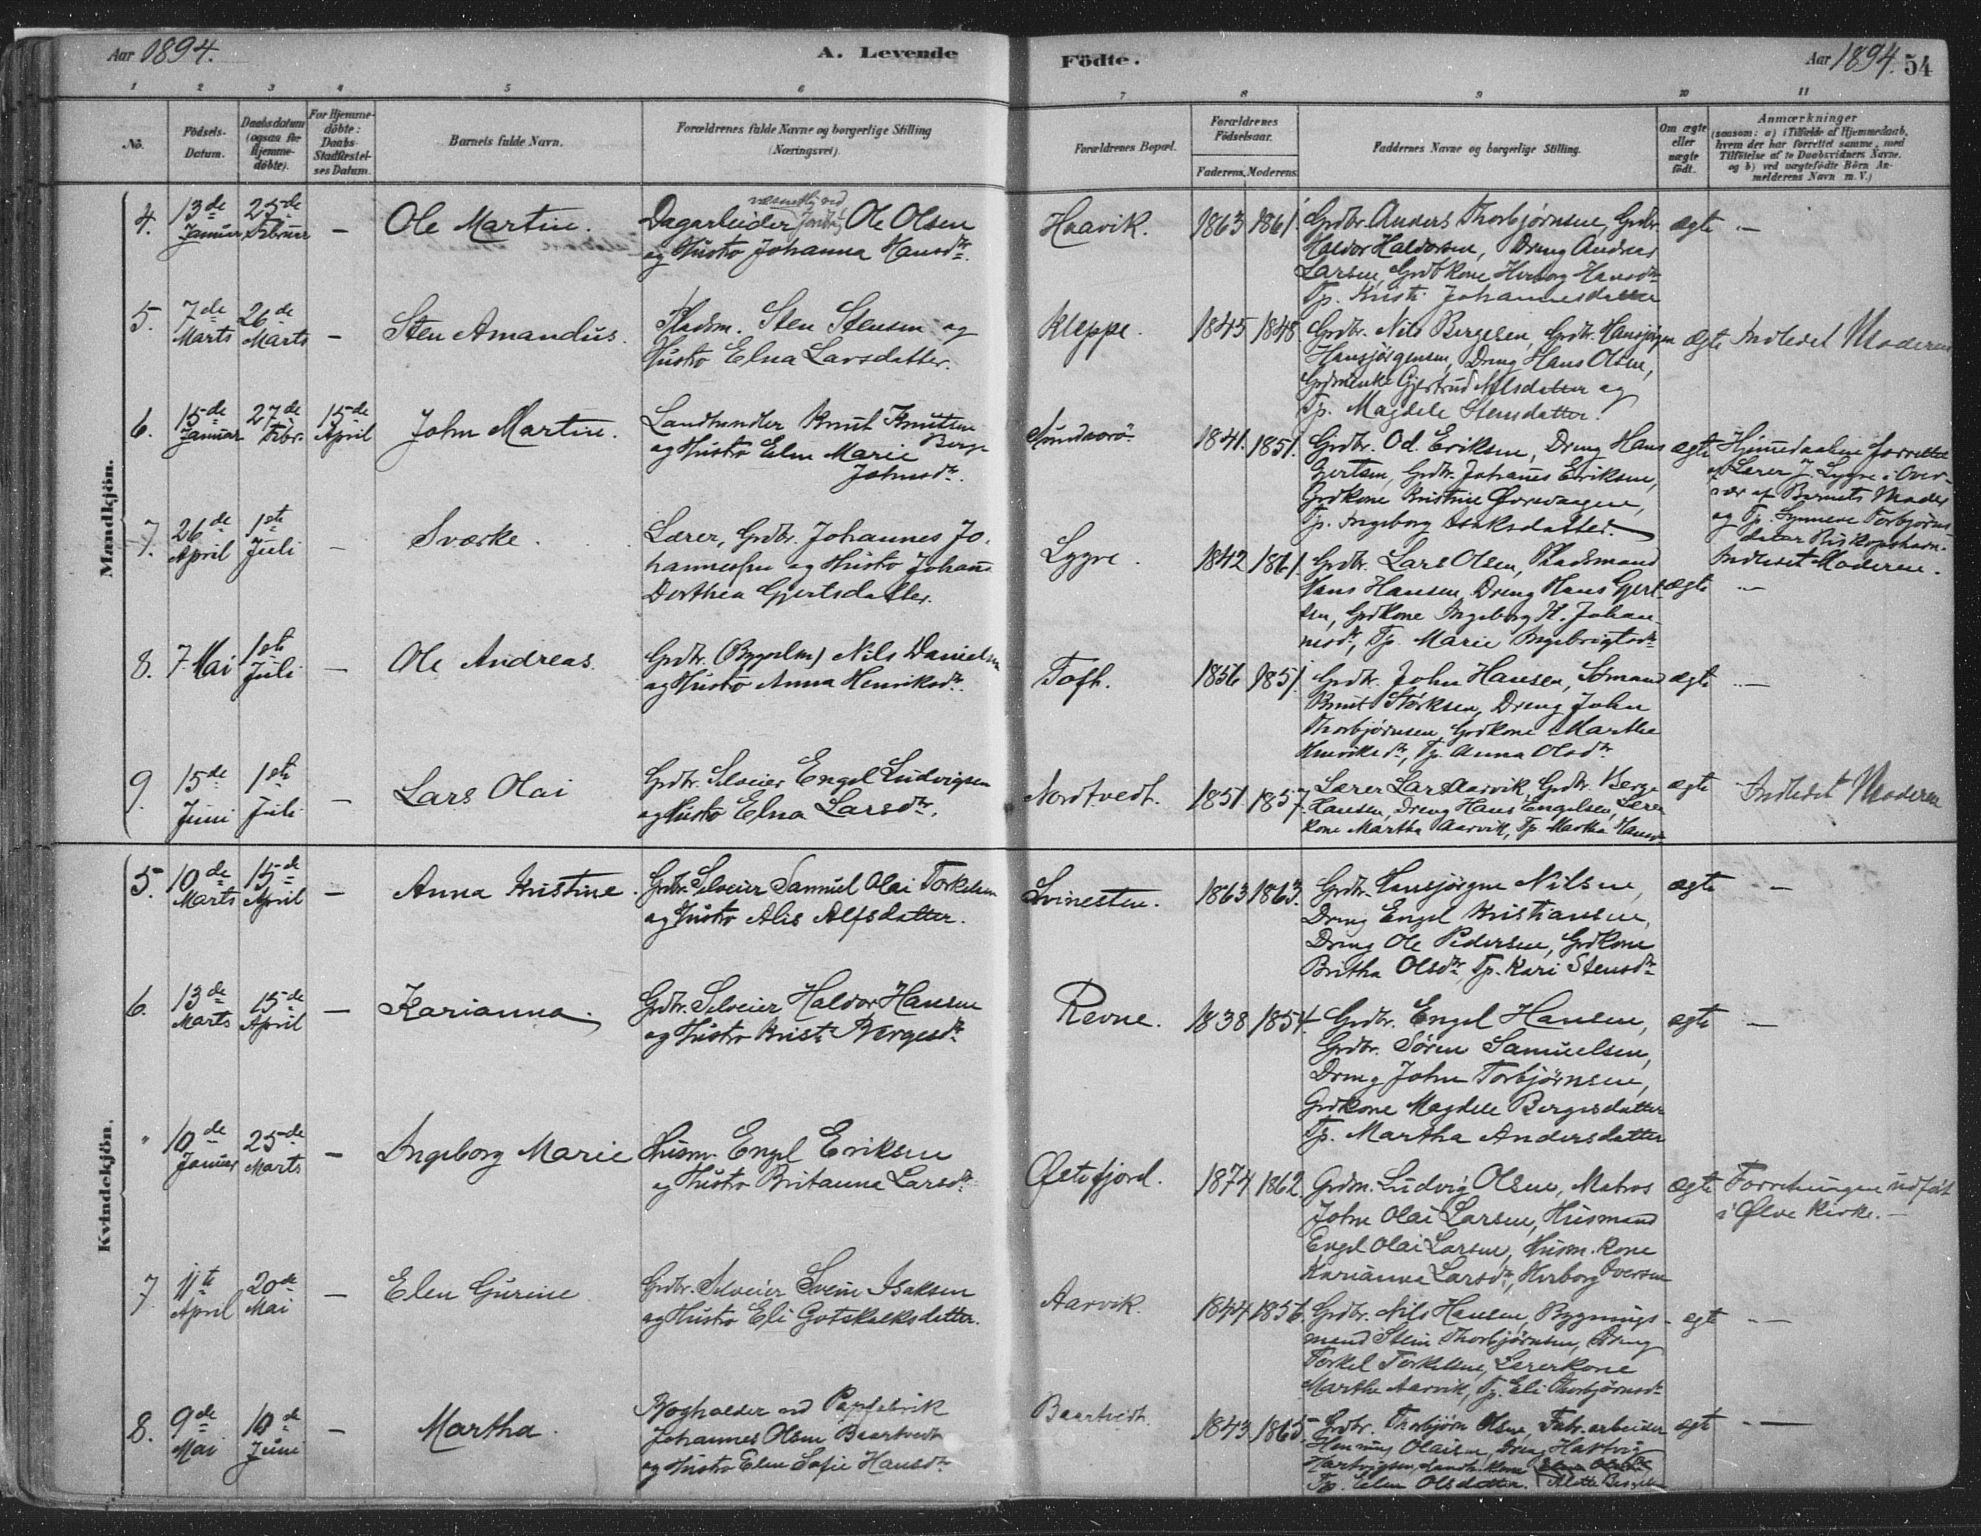 Aar 1894. A. Levende Födte. Aar 1894. 54
1 2 3 4 5 6 7 8 9 10 11
No. Födsels-Datum. Daabsdatum (ogsaa for Hjemme-döbte). For Hjemme-döbte: Daabs-Stadfæstel-ses Datum. Barnets fulde Navn. Forældrenes fulde Navne og borgerlige Stilling (Næringsvei). Forældrenes Bopæl. Forældrenes Födselsaar. Faderens. Moderens. Faddernes Navne og borgerlige Stilling. Om ægte eller uægte födt. Anmærkninger (saasom: a) i Tilfælde af Hjemmedaab, hvem der har forrettet samme, med Tilföielse af to Daabsvidners Navne. og b) ved uægtefödte Börn An-melderens Navn m. V.)
Mandkjön.
4. 13de Januar 25de Februar — Ole Martin. Dagarbeider Ole Olsen
og Hustro Johanna Hansdtr. Haavik. 1863 1861. Grdbr. Anders Thorbjørnsen, Grdbr.
Haldor Haldorsen, Dreng Andreas
Larsen, Grdbkone Herborg Hansdtr
Tp. Kristi Johannesdatter ægte —
5. 7de Marts 26de Marts — Sten Amandus. Pladsm. Sten Stensen og
Hustro Elna Larsdatter. Kleppe. 1845 1848. Grdbr. Nils Børgesen, Grdbr. Hansjørgen
Hansjørgensen, Dreng Hans Olsen,
Grdmenke Gjertrud Nilsdatter og
Tp. Magdele Stensdatter. ægte Indledet Moderen
6. 15de Januar 27de Febr. 15de April John Martin. Landhandler Knut Knutsen Berge
og Hustro Elen Marie
Johnsdtr. Sundsørø 1841. 1851. Grdbr. Od. Eriksen, Dreng Hans
Gjertsen, Grdbr. Johannes Eriksen,
Grdkone KristineØrrevaagen,
Tp. Ingeborg Isaksdatter. ægte Hjemmedaaben forrettet
af Lærer J. Lygre i Over-
vær af Barnets Moder
og Tp. Synneve Torbjørns
datter Biskopshavn.
Indledet Moderen.
7. 26de April 1ste Juli — Sværke. Lærer, Grdbr. Johannes Jo-
hannessen og Hustro Johanne
Dorthea Gjertsdatter. Lygre. 1842 1861. Grdbr. Lars Olsen, Pladsmand
Hans Hansen, Dreng Hans Gjert-
sen, Grdkone Ingeborg H. Johan-
nesdtr, Tp. Marie Ingebrigtsdtr ægte —
8. 7. Mai 1ste Juli — Ole Andreas. Grdbr. Nils Danielsen
og Hustro Anna Henriksdtr. Toft. 1856 1851. Grdbr. John Hansen, Sømand
Knut Størksen, Dreng John
Thorbjørnsen, Grdkone Marthe
Henriksdtr, Tp. Anna Olsdtr ægte —
9. 15de Juni 1ste Juli — Lars Olai Grdbr. Selveier Engel Ludvigsen
og Hustro Elna Larsdtr. Nordtvedt. 1851. 1857. Lærer Lars Aarvik, Grdbr. Berge
Hansen, Dreng Hans Engelsen, Lærer
kone Martha Aarvik, Tp. Martha Hansdtr ægte Indledet Moderen
Kvindekjön.
5. 10de Marts 15de April — Anna Kristine. Grdbr. Selveier Samuel Olai Torkelsen
og Hustro Alis Alfsdatter. Svinesten. 1863 1863. Grdbr. Hansjørgen Nilsen,
Dreng Engel Kristiansen,
Dreng Ole Pedersen, Grdkone
Britha Olsdtr, Tp. Kari Stensdtr ægte —
6. 13de Marts 15de April — Karianna. Grdbr. Selveier Haldor Hansen
og Hustro Kristi Børgesdtr Revne. 1838 1854. Grdbr. Engel Hansen,
Grdbr. Søren Samuelsen,
Dreng John Torbjørnsen,
Grdkone Magdele Bergesdatter
Tp. Martha Andersdatter ægte —
" 10de Januar 25de Marts — Ingeborg Marie Husm. Engel Eriksen
og Hustro Britanna Larsdtr. Østefjord. 1874 1862. Grdm. Ludvig Olsen, Matros
John Olai Larsen, Husmand
Engel Olai Larsen, Husm. kone
Karianne Larsdtr, Herborg Iversen ægte Forretningen udført
i Ølve Kirke. —
7. 11te April 20de Mai — Elen Gurine. Grdbr. Selveier Svein Isaksen
og Hustro Eli Gotskalksdatter. Aarvik. 1844 1856. Grdbr. Nils Hansen, Bygnings-
mand Stein Thorbjørnsen, Dreng
Torkel Torkelsen, Lærerkone
Marthe Aarvik, Tp. Eli Thorbjørnsdtr ægte —
8. 9de Mai 10de Juni — Martha. Bogholder ved Papfabrik
Johannes Olsen Baartvedt
og Hustro Elen Sofie Hansdtr Baartvedt. 1843. 1865. Grdbr. Thorbjørn Olsen, Fabr.arbeider
Henning Olaisen, Dreng Hartvig
Hartvigsen, Landh. kone
Tp. Elen Olsdatter. ægte —